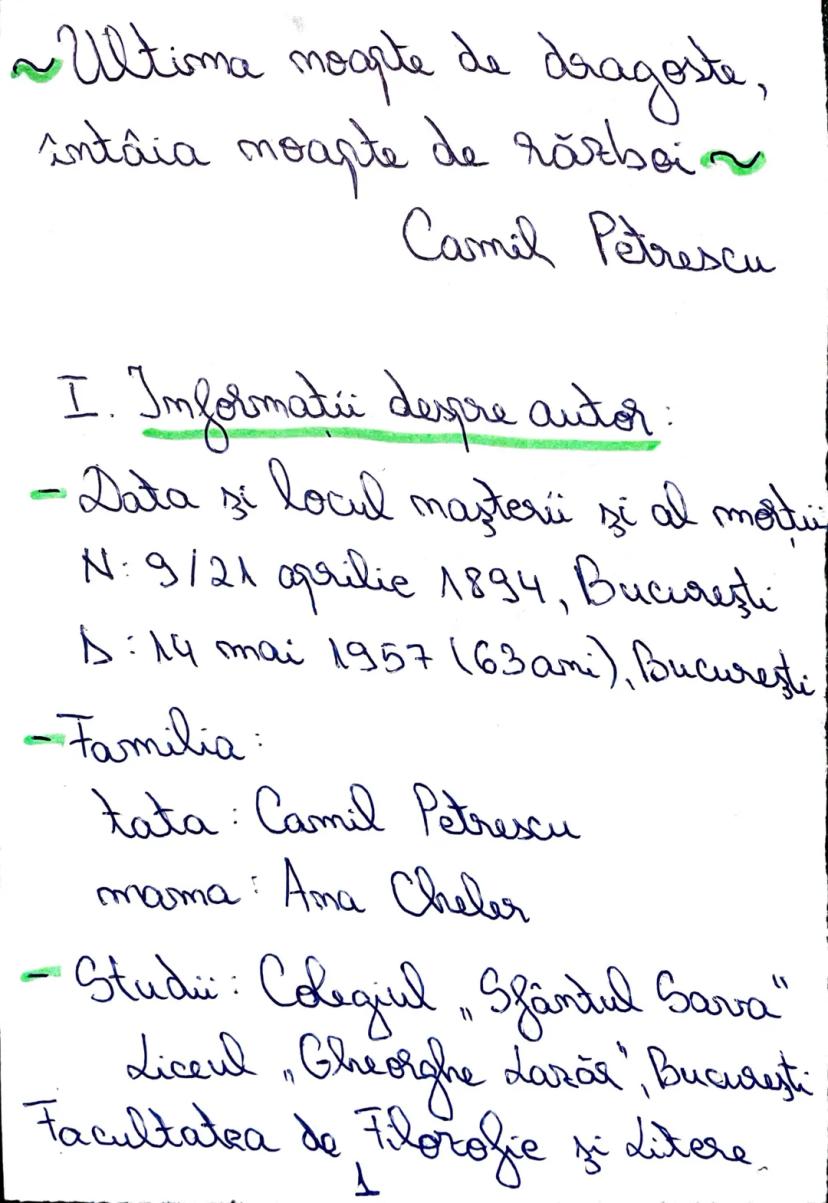 ~Ultima noapte de dragoste,
întâia noapte de război~
Camil Petrescu
I. Informatii despre autor:
- Data și locul nașterii și al morții
N: 9/21 aprilie 1894, București
D: 14 mai 1957 (63 ani), București
- Familia:
tata: Camil Petrescu
mama: Ana Cheler
- Studii: Colegiul „Sfântul Sava"
Liceul „Gheorghe Lazăr", București
Facultatea de Filozofie și Litere.
1